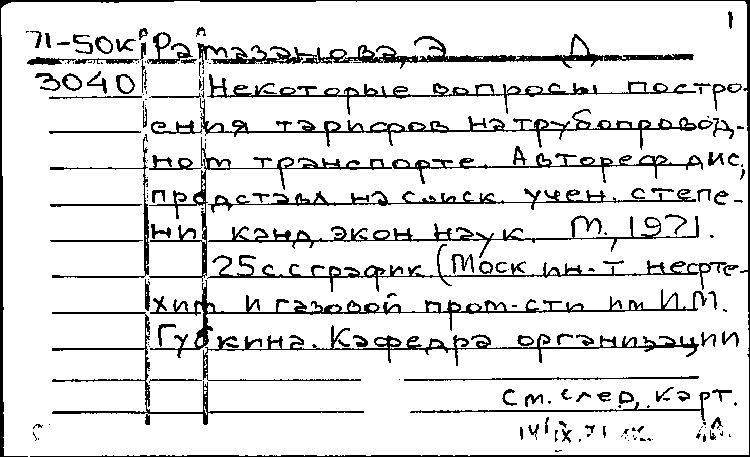 1
71-50к Рамазанова, Э Д
3040 Некоторые вопросы постро-
ения тарифов на трубопровод-
ном транспорте. Автореф дис,
представл на соиск. учен. степе-
ни канд. экон наук. М., 1971.
25 с. с график (Моск ин-т нефте-
хим. и газовой пром-сти им И.М.
Губкина. Кафедра организации
См. след, карт.
14/IX.71